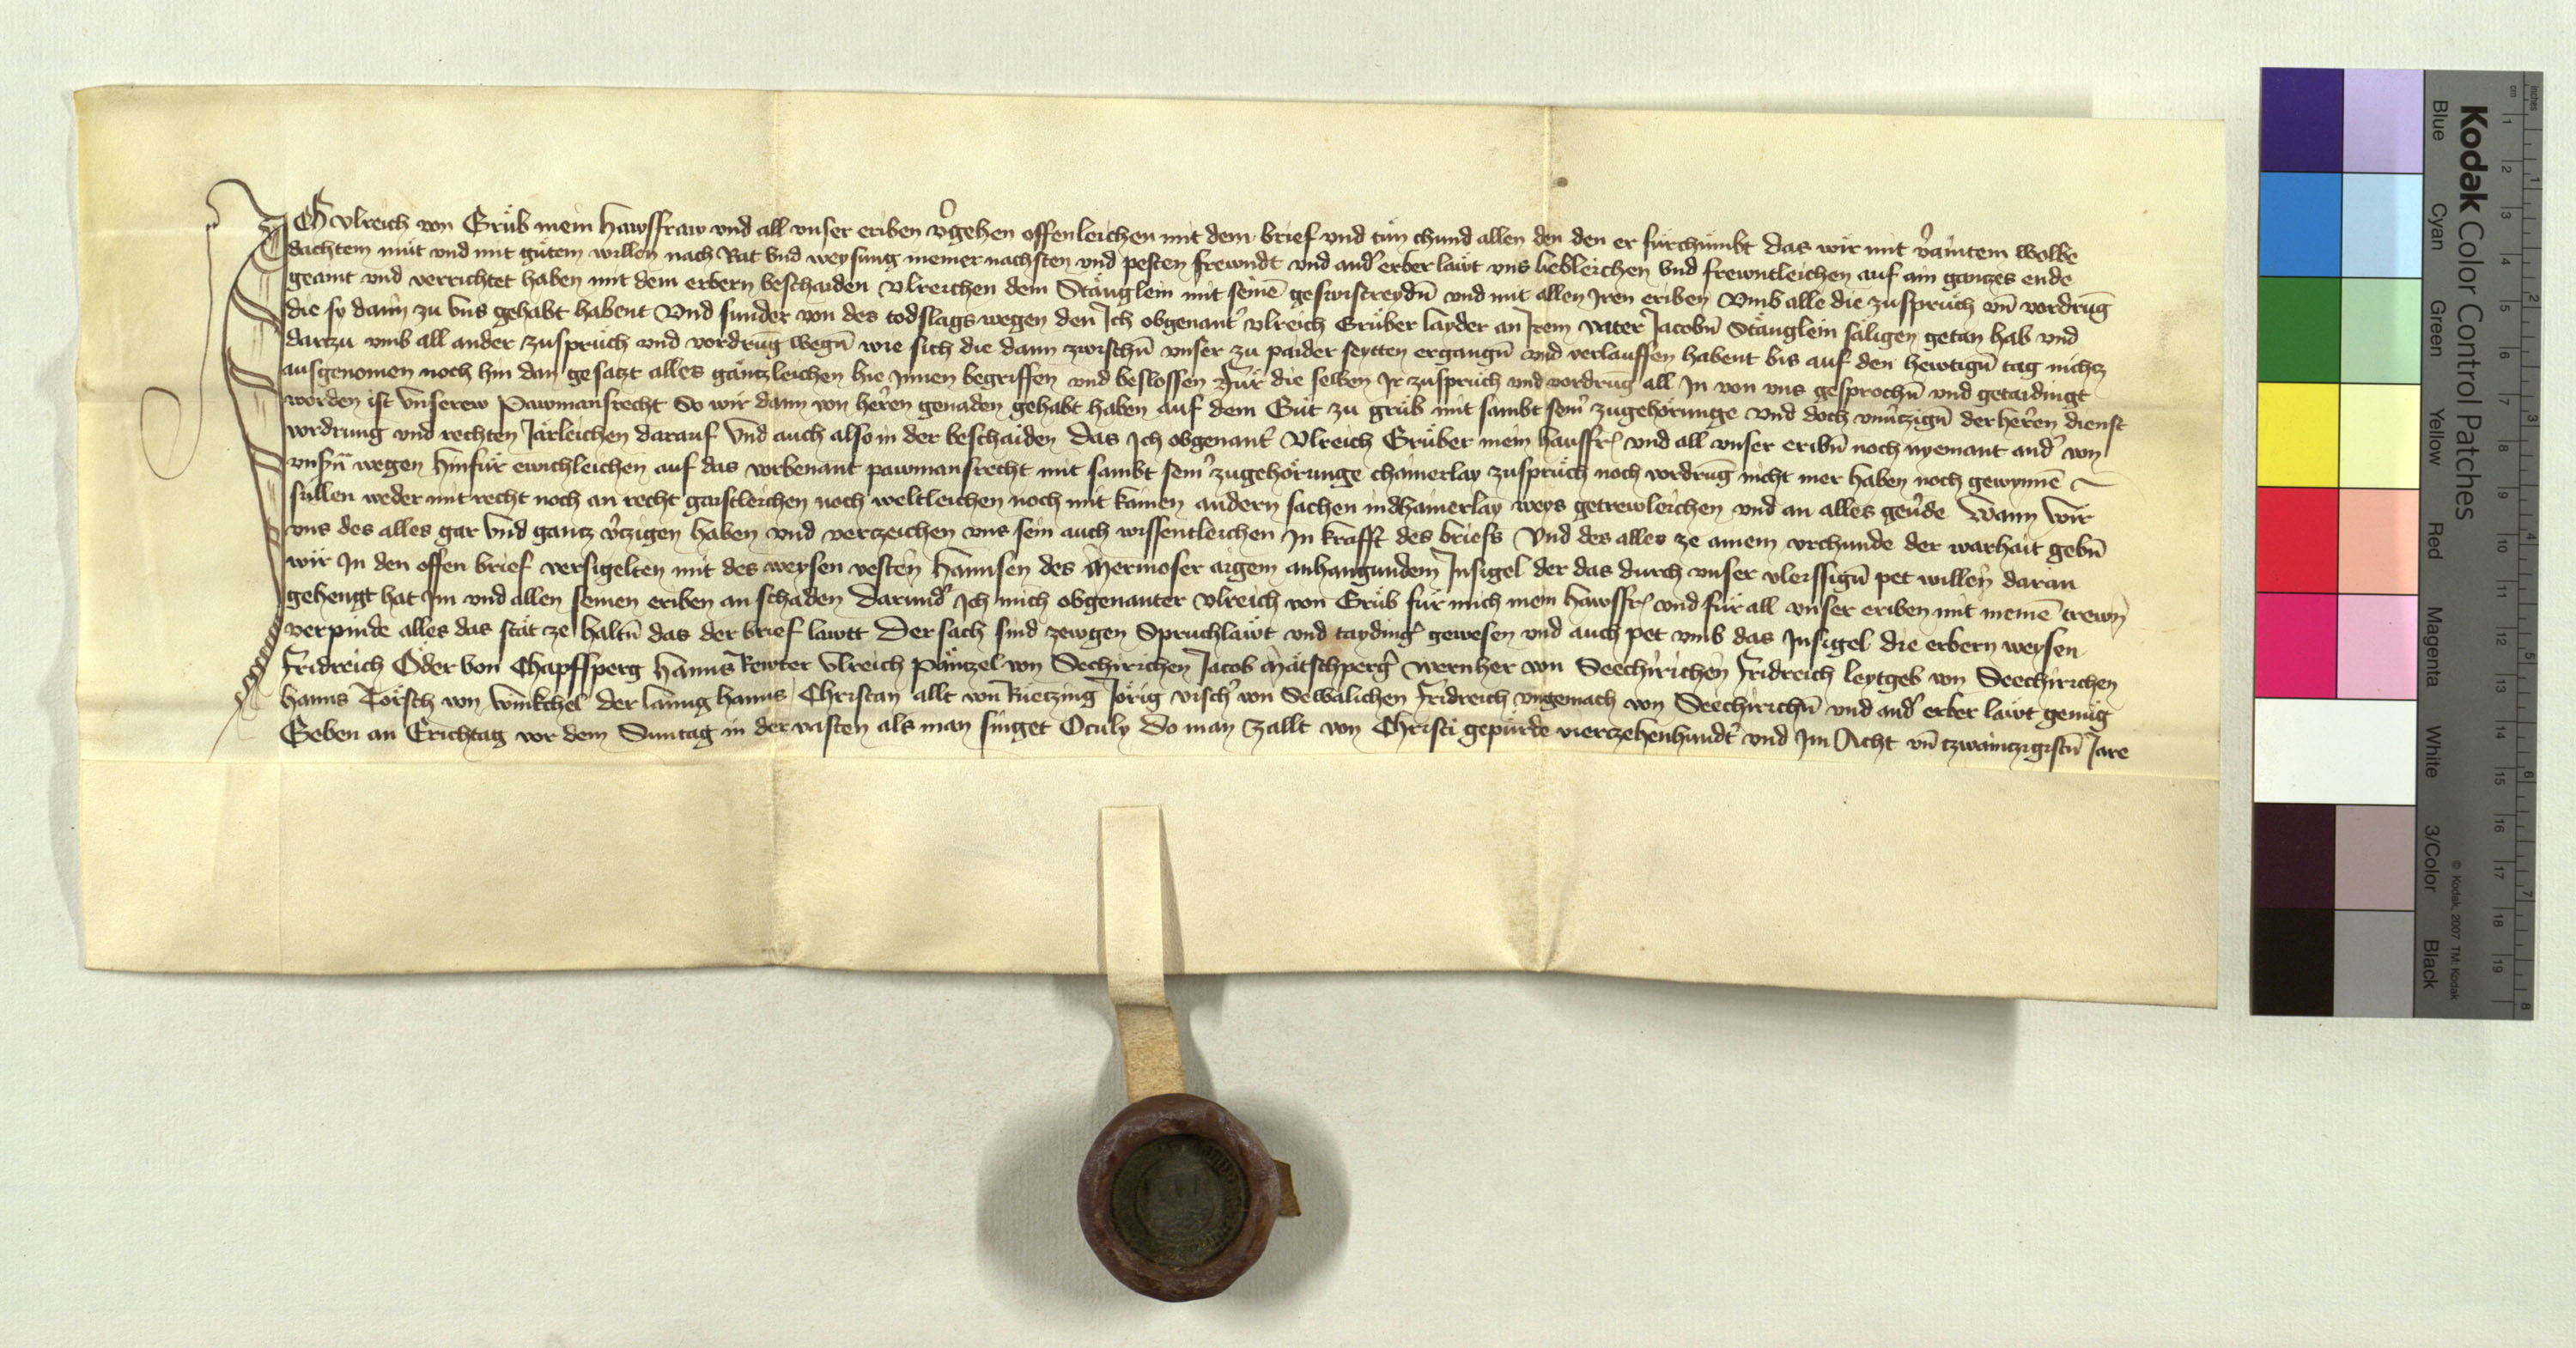 Ich Ulreich von Grüb mein hawsfraw und all unser eriben v'gehen offenleichen mit dem brief und tün chund allen den den er fürchümbt das wir mit v'aintem wolbe
dachtem müt und mit gütem willen nach Rat und weysung meiner nachsten und pesten frewndt und and' erber läwt uns liebleichen und frewntleichen auf ain ganzes ende
geaint und verrichtet haben mit dem erbern beschaiden Ulreichen dem Stänglein mit seinē geswistreydn̄ und mit allen Iren eriben Umb alle die zusprüch un̄ vordrūg
die sy dann zu uns gehabt habent Und sunder von des todslags wegen den Ich obgenant' Ulreich Grüber layder an Irem vater Jacobn̄ Stänglein säligen getan hab und
darzu umb all ander zusprüch und vordrūg wegn̄ wie sich die dann zwischn̄ unser zu paider seytten ergangn̄ und verlauffen habent bis auf den hewtign̄ tag nichcz
ausgenomen noch hin dan gesatzt alles gäntzleichen hie Innen begriffen und beslossen Für die selben Ir zusprüch und vordrūg all In von uns gesprochn̄ und getaidingt
worden ist Unserew Pawmansrecht So wir dann von heren genaden gehabt haben auf dem Güt zu grüb mit sambt sein' zugehörunge und doch unv'tzign̄ der heren dienst
vordrung und rechten Järleichen darauf Und auch also in der beschaiden Das Ich obgenant' Ulreich Grüber mein hausfr' und all unser eribn̄ noch nyemant and' von
unsn̄ wegen hinfür ewichleichen auf das vorbenant pawmansrecht mit sambt sein' zugehörunge chainerlay zusprüch noch vordrūg nicht mer haben noch gewynnē
süllen weder mit recht noch an recht gaistleichen noch weltleichen noch mit kainen andern sachen indhainerlay weys getrewleichen und an alles gev'de Wann wir
uns des alles gar und gantz v'tzigen haben und verzeichen uns sein auch wissentleichen In krafft des briefs Und des alles ze ainem urchunde der warhait gebn̄
wir In den offen brief versigelten mit des weysen vesten Hannsen des Mermoser aigem anhangundem Insigel der das durch unser vleissign̄ pet willen daran
gehengt hat Im und allen seinen eriben an schaden Darund' Ich mich obgenanter Ulreich von Grüb für mich mein hawsfr' und für all unser eriben mit meinē trewn
verpinde alles das stät ze haltn̄ das der brief lawtt Der sach sind zewgen Spruchläwt und tayding' gewesen und auch pet umb das Insigel die erbern weysen
Fridreich Oder von Chapfsperg Hanns Rewter Ulreich Päntzel von Seechirichen Jacob Mätschperg' Wernher von Seechirichen Fridreich leytgeb von Seechirichen
Hanns Törsch von Winkchel der lanng Hanns Christan allt von Kuetzing Jörig visch' von Sewalichen Fridreich ungemach von Seechirichn̄ und and' erber läwt genüg
Geben an Erichtag vor dem Suntag in der vasten als man singet Oculy Do man zallt von Christi gepürde vierzehenhundt' und Im Acht un̄ tzwaintzigistn̄ Jare
Kodak Color Control Patches
Blue Cyan Green Yellow Red Magenta White 3/Color Black
© Kodak, 2007 TM: Kodak
inches 1 2 3 4 5 6 7 8
cm 1 2 3 4 5 6 7 8 9 10 11 12 13 14 15 16 17 18 19